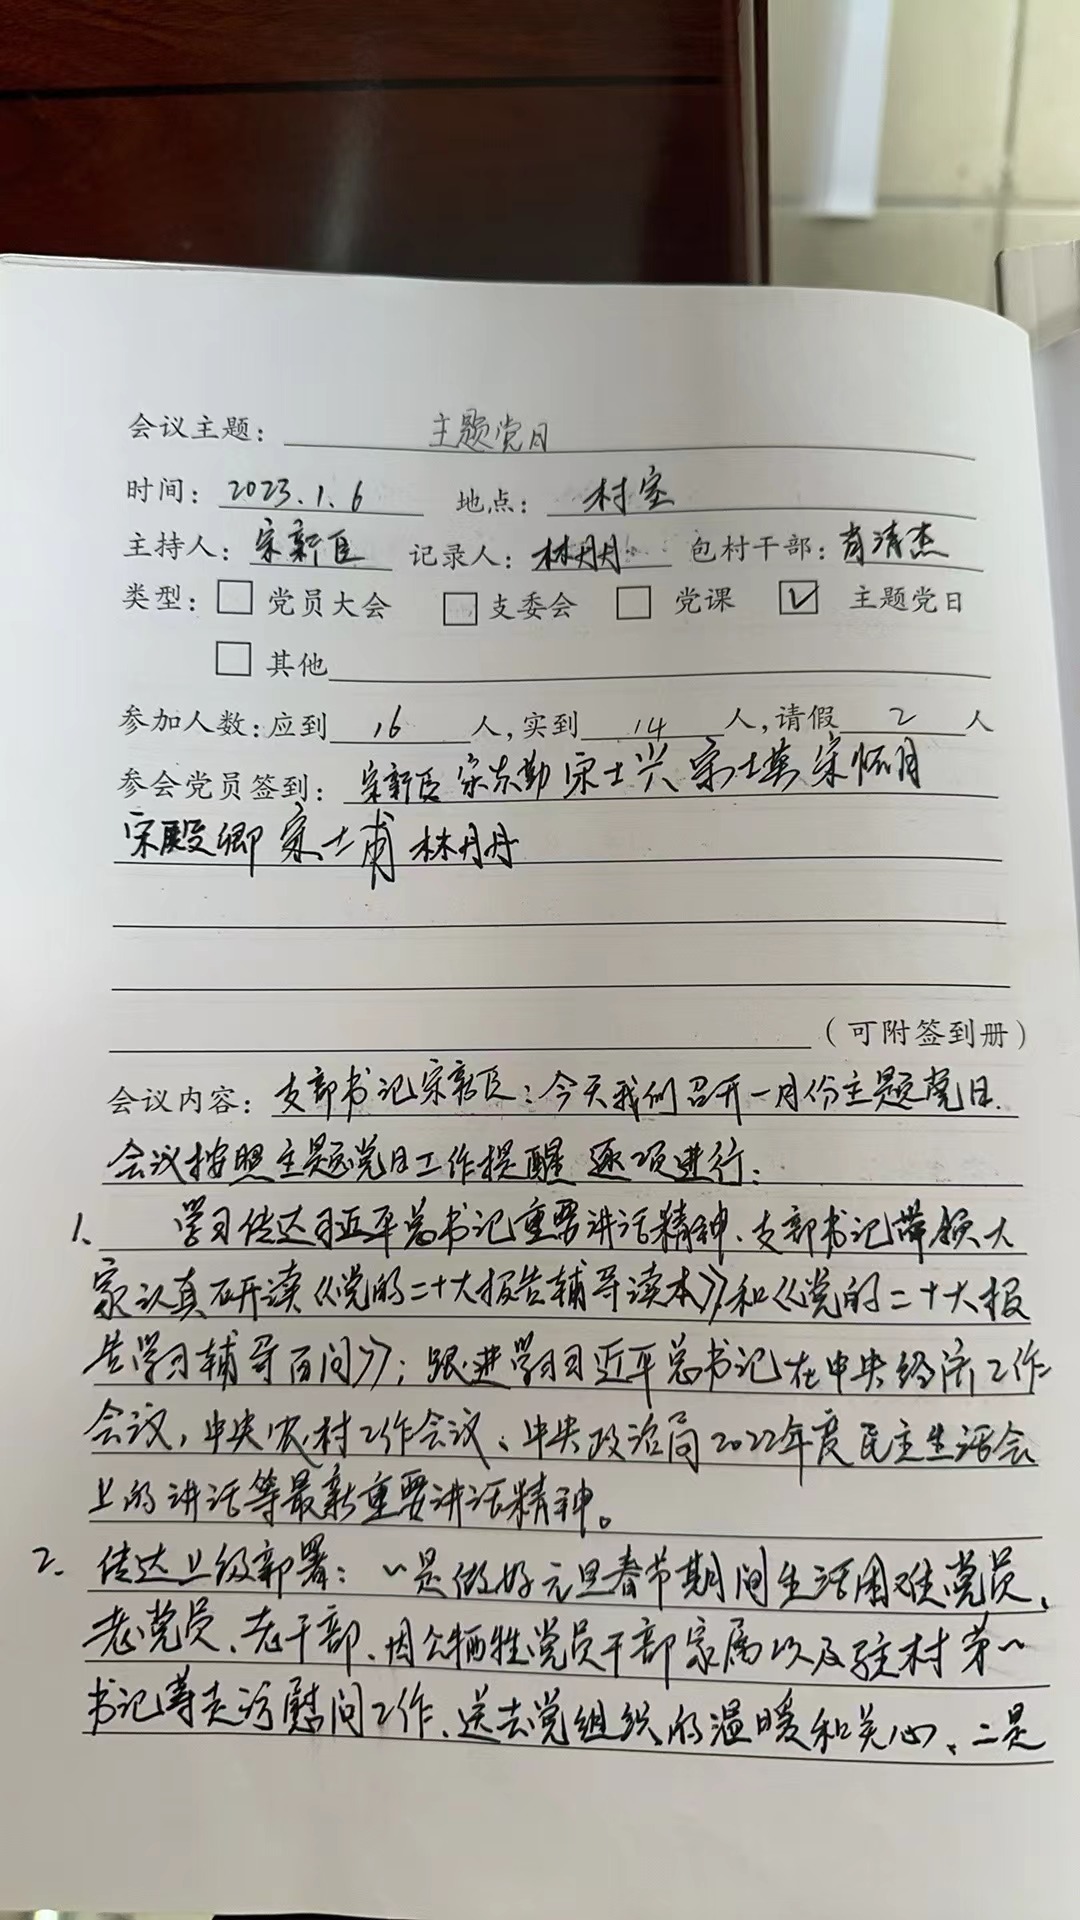 会议主题： 主题党日
时间：2023.1.6 地点：村室
主持人：宋新臣 记录人：林丹丹 包村干部：肖清杰
类型：□ 党员大会 □ 支委会 □ 党课 ☑ 主题党日
□ 其他
参加人数：应到 16 人，实到 14 人，请假 2 人
参会党员签到：宋新臣 宋东勤 宋士兴 宋士英 宋怀月
宋殿卿 宋士甫 林丹丹
（可附签到册）
会议内容：支部书记宋新臣：今天我们召开一月份主题党日.
会议按照主题党日工作提醒逐项进行：
1、学习传达习近平总书记重要讲话精神、支部书记带领大
家认真研读《党的二十大报告辅导读本》和《党的二十大报
告学习辅导百问》；跟进学习习近平总书记在中央经济工作
会议，中央农村工作会议、中央政治局2022年度民主生活会
上的讲话等最新重要讲话精神。
2、传达上级部署：一是做好元旦春节期间生活困难党员、
老党员、老干部、因公牺牲党员干部家属以及驻村第一
书记等走访慰问工作、送去党组织的温暖和关心、二是